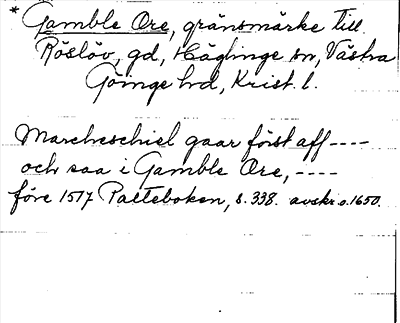 * Gamble Ore, gränsmärke till
Röslöv, gd, Häglinge sn, Västra
Göinge hd, Krist. l.
Marcheschiel gaar först aff ----
och saa i Gamble Ore, ----
före 1517 Palteboken, s. 338. avskr. o. 1650.